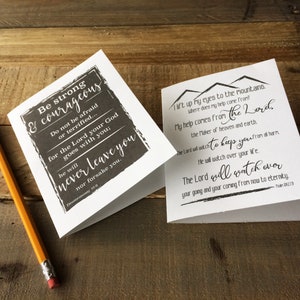 Be strong
& courageous
Do not be afraid
or terrified
for the Lord your God
goes with you;
he will
never leave you
nor forsake you.
I lift up my eyes to the mountains.
Where does my help come from?
My help comes from the Lord,
the Maker of heaven and earth.
The Lord will watch to keep you from all harm.
He will watch over your life.
The Lord will watch over
your going and your coming from now to eternity.